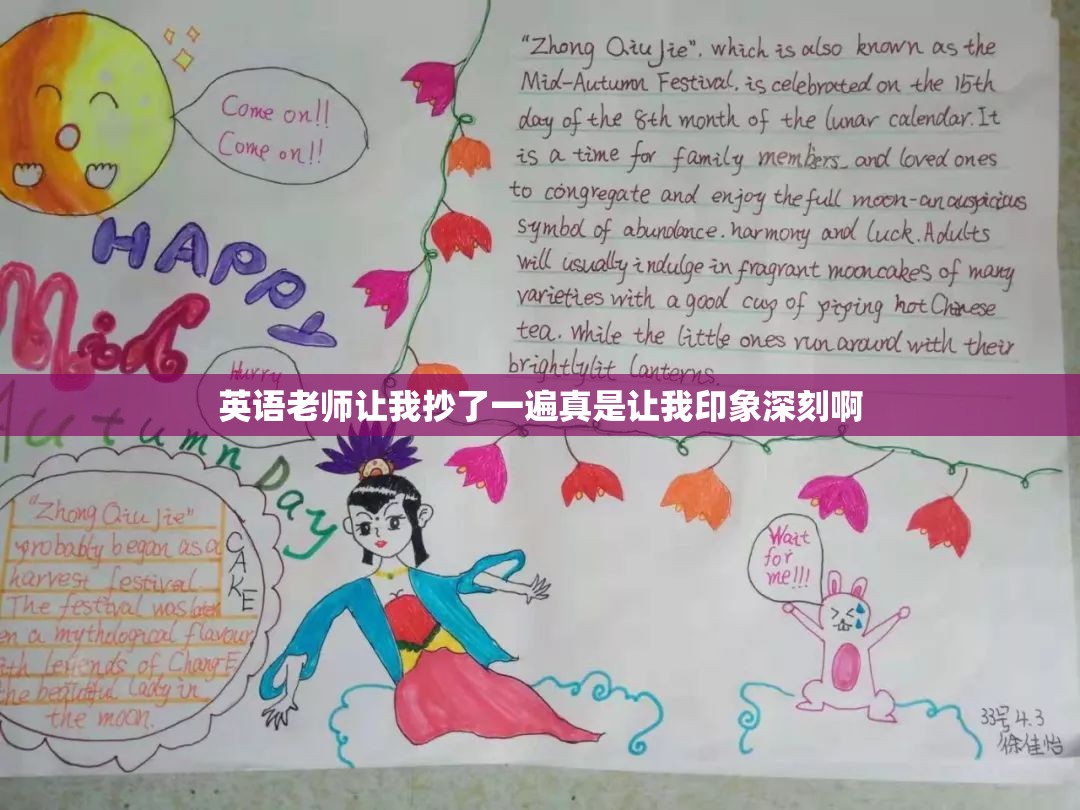 Come on!!
Come on!!
HAPPY
Mid
Autumn
Day
"Zhong Qiu Jie". which is also known as the
Mid-Autumn Festival. is celebrated on the 15th
day of the 8th month of the lunar calendar. It
is a time for family members and loved ones
to congregate and enjoy the full moon-an auspicious
symbol of abundance. harmony and luck. Adults
will usually indulge in fragrant mooncakes of many
varieties with a good cup of piping hot Chinese
tea. while the little ones run around with their
brightly lit lanterns.
Hurry
英语老师让我抄了一遍真是让我印象深刻啊
"Zhong Qiu Jie"
probably began as a
harvest festival.
The festival was later
en a mythological flavour
ith legends of Chang E
the beautiful lady in
the moon.
CAKE
Wait
for
me!!!
33号 4.3
徐佳怡